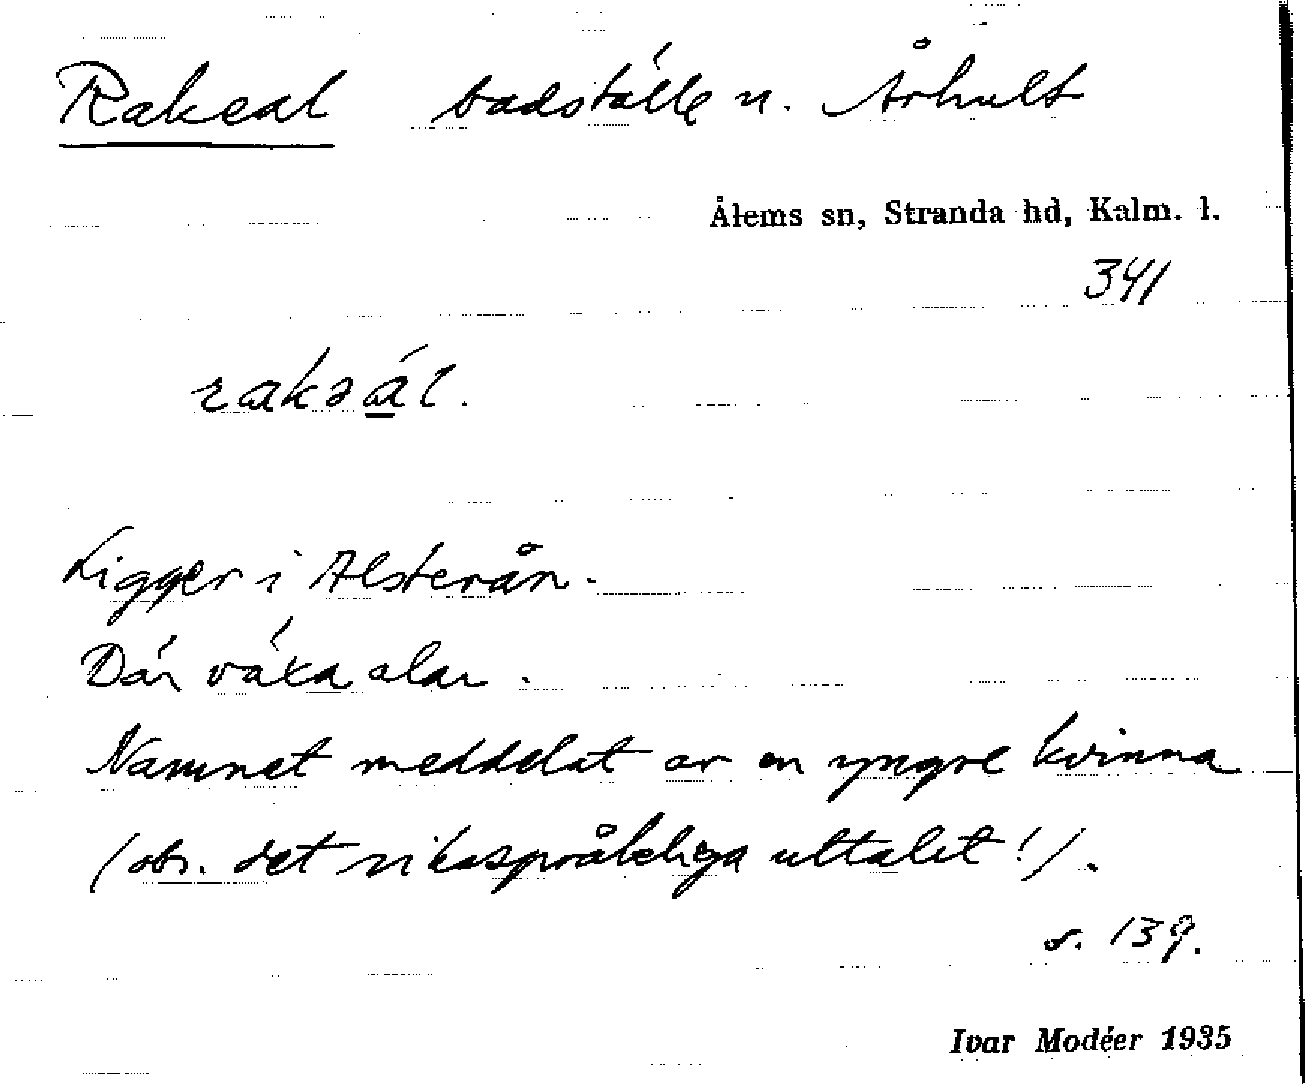 Rakeal badställe n. Århult
Ålems sn, Stranda hd, Kalm. l.
341
rakəál.
Ligger i Alsterån.
Där växa alar.
Namnet meddelat av en yngre kvinna
(obs. det rikspråkliga uttalet!).
s. 139.
Ivar Modéer 1935